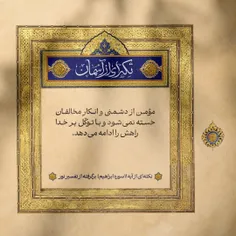 نکته‌ای از آیه‌ها
مؤمن از دشمنی و انکار مخالفان
خسته نمی‌شود و با توکل بر خدا
راهش را ادامه می‌دهد.
نکته‌ای از آیه ۱۲ سوره ابراهیم؛ برگرفته از تفسیر نور